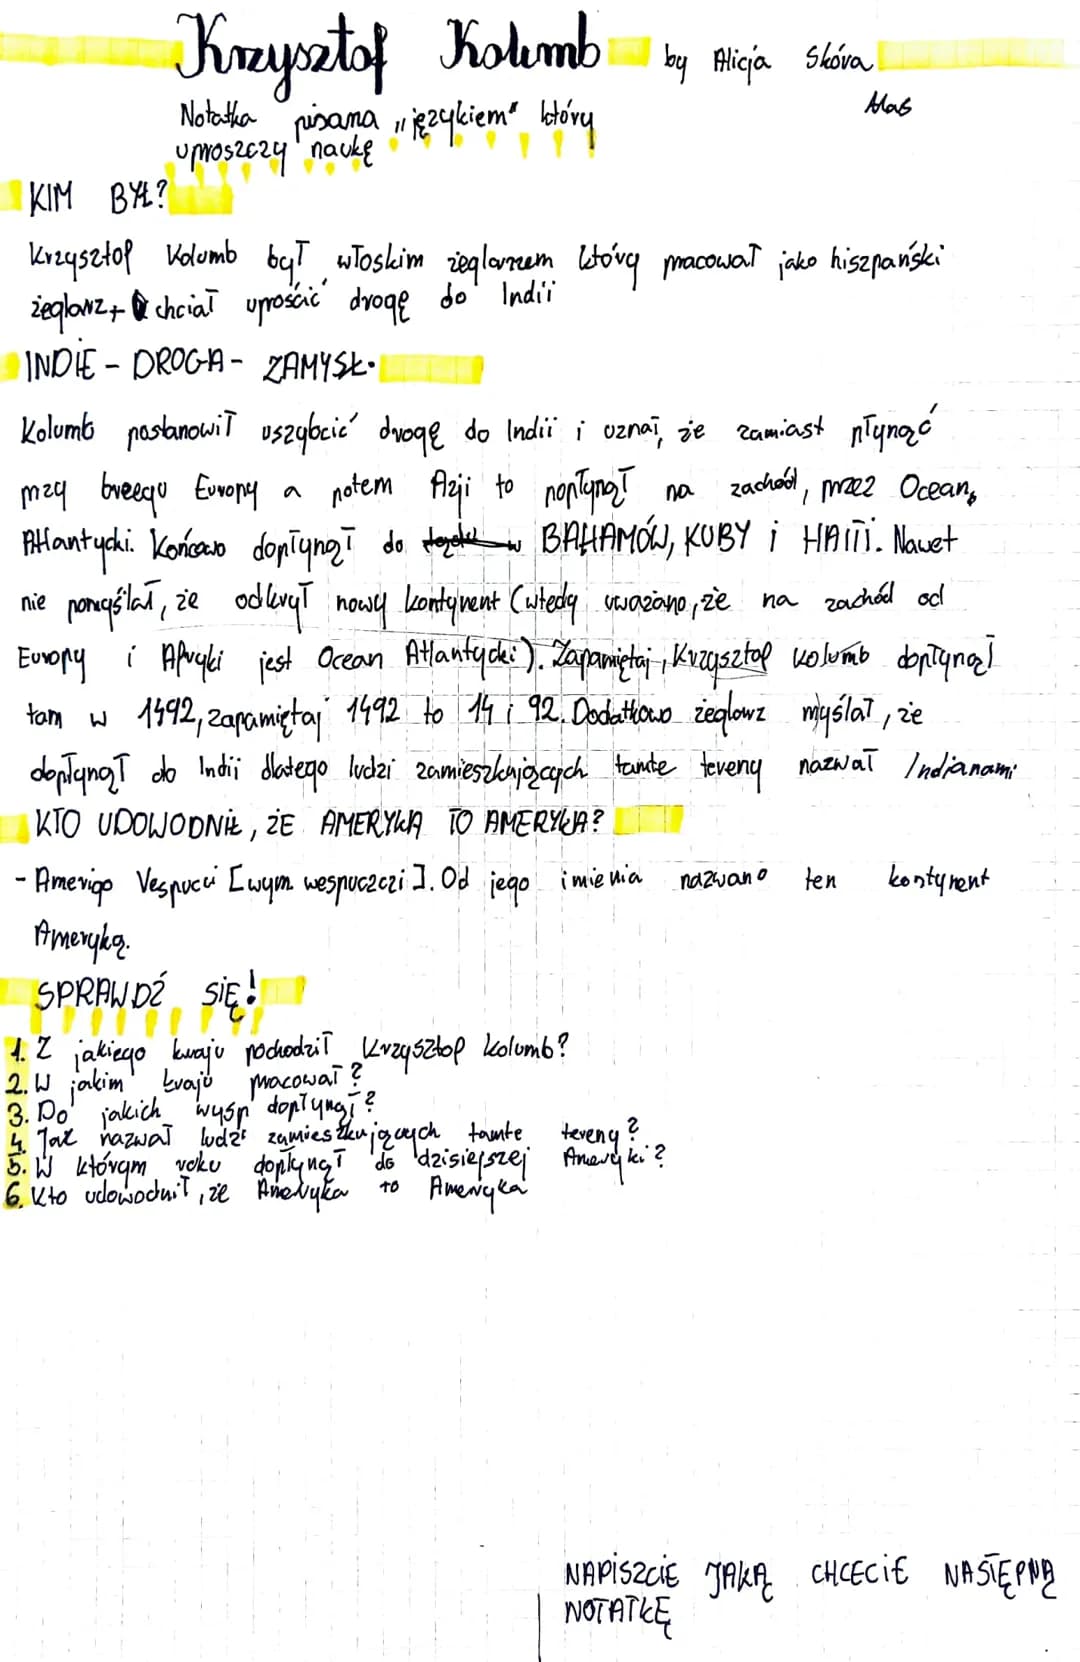 Krzysztof Kolumb by Alicja Skóra
Notatka pisana „językiem" który
uproszczy naukę
KIM BYŁ?
Krzysztof Kolumb był włoskim żeglarzem który pracował jako hiszpański
żeglarz + chciał uprościć drogę do Indii
INDIE - DROGA - ZAMYSŁ.
Kolumb postanowił uszybcić drogę do Indii i uznał, że zamiast płynąć
przy brzegu Europy a potem Azji to popłynął na zachód, przez Ocean
Atlantycki. Końcowo dopłynął do BAHAMÓW, KUBY i HAITI. Nawet
nie pomyślał, że odkrył nowy kontynent (wtedy uważano, że na zachód od
Europy i Afryki jest Ocean Atlantycki). Zapamiętaj, Krzysztof Kolumb dopłynął
tam w 1492, zapamiętaj 1492 to 14 i 92. Dodatkowo żeglarz myślał, że
dopłynął do Indii dlatego ludzi zamieszkujących tamte tereny nazwał Indianami
KTO UDOWODNIŁ, ŻE AMERYKA TO AMERYKA?
- Amerigo Vespucci [wym. wespuczczi]. Od jego imienia nazwano ten kontynent
Ameryką.
SPRAWDŹ SIĘ!
1. Z jakiego kraju pochodził Krzysztof Kolumb?
2. W jakim kraju pracował?
3. Do jakich wysp dopłynął?
4. Jak nazwał ludzi zamieszkujących tamte tereny?
5. W którym roku dopłynął do dzisiejszej Ameryki?
6. Kto udowodnił, że Ameryka to Ameryka
NAPISZCIE JAKĄ CHCECIE NASTĘPNĄ
NOTATKĘ